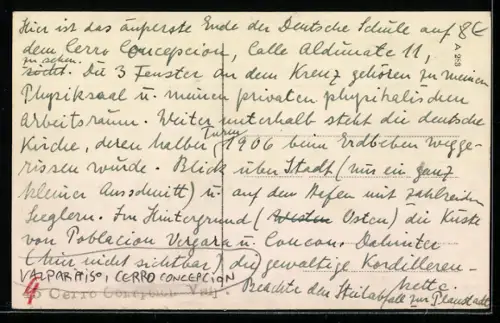 Hier ist das äuperste Ende der Deutsche Schule auf 8€
dem Cerro Concepcion, Calle Aldunate 11,
zu sehen. Die 3 Fenster an dem Kreuz gehören zu meinem
Physiksaal u. meinen privaten physikalischen
Arbeitsraum. Weiter unterhalb steht die deutsche
Kirche, deren halber Turm 1906 beim Erdbeben wegge-
rissen wurde. Blick über Stadt (nur ein ganz
kleiner Ausschnitt) u. auf den Hafen mit zahlreichen
Seeglern. Im Hintergrund (Westen Osten) die Küste
von Poblacion Vergara u. Concon. Dahinter
(hier nicht sichtbar) die gewaltige Kordilleren-
kette.
VALPARAISO, CERRO CONCEPCION
Beachte den Steilabfall zur Planstadt
4 Cerro Concepcion Valp.
A 259